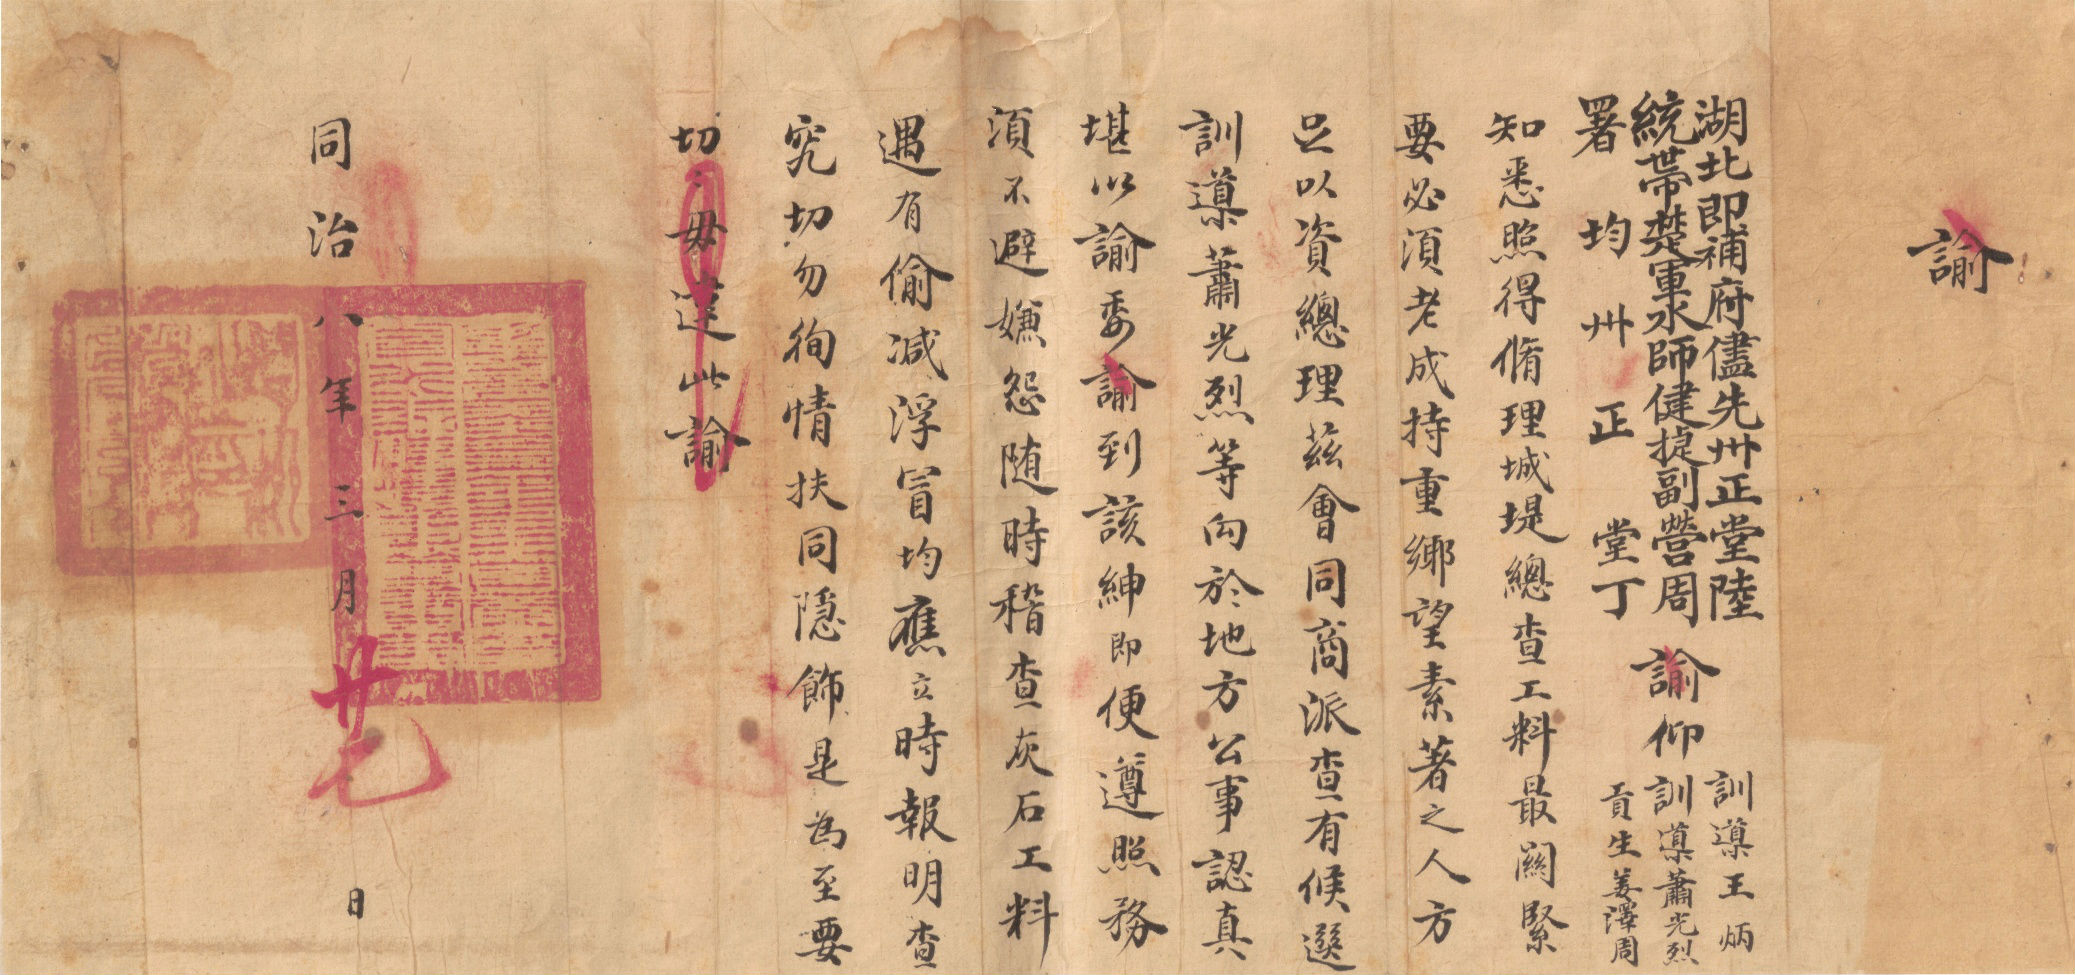 諭
湖北即補府儘先州正堂陸
統帶楚軍水師健捷副營周
署均州正堂丁
諭仰
訓導王炳
訓導蕭光烈
貢生姜澤周
知悉照得脩理城堤總查工料最關緊
要必須老成持重鄉望素著之人方
足以資總理茲會同商派查有候選
訓導蕭光烈等向於地方公事認真
堪以諭委諭到該紳即便遵照務
須不避嫌怨随時稽查灰石工料
遇有偷减浮冒均應立時報明查
究切勿徇情扶同隱飾是為至要
切毋違此諭
同治八年三月廿七日